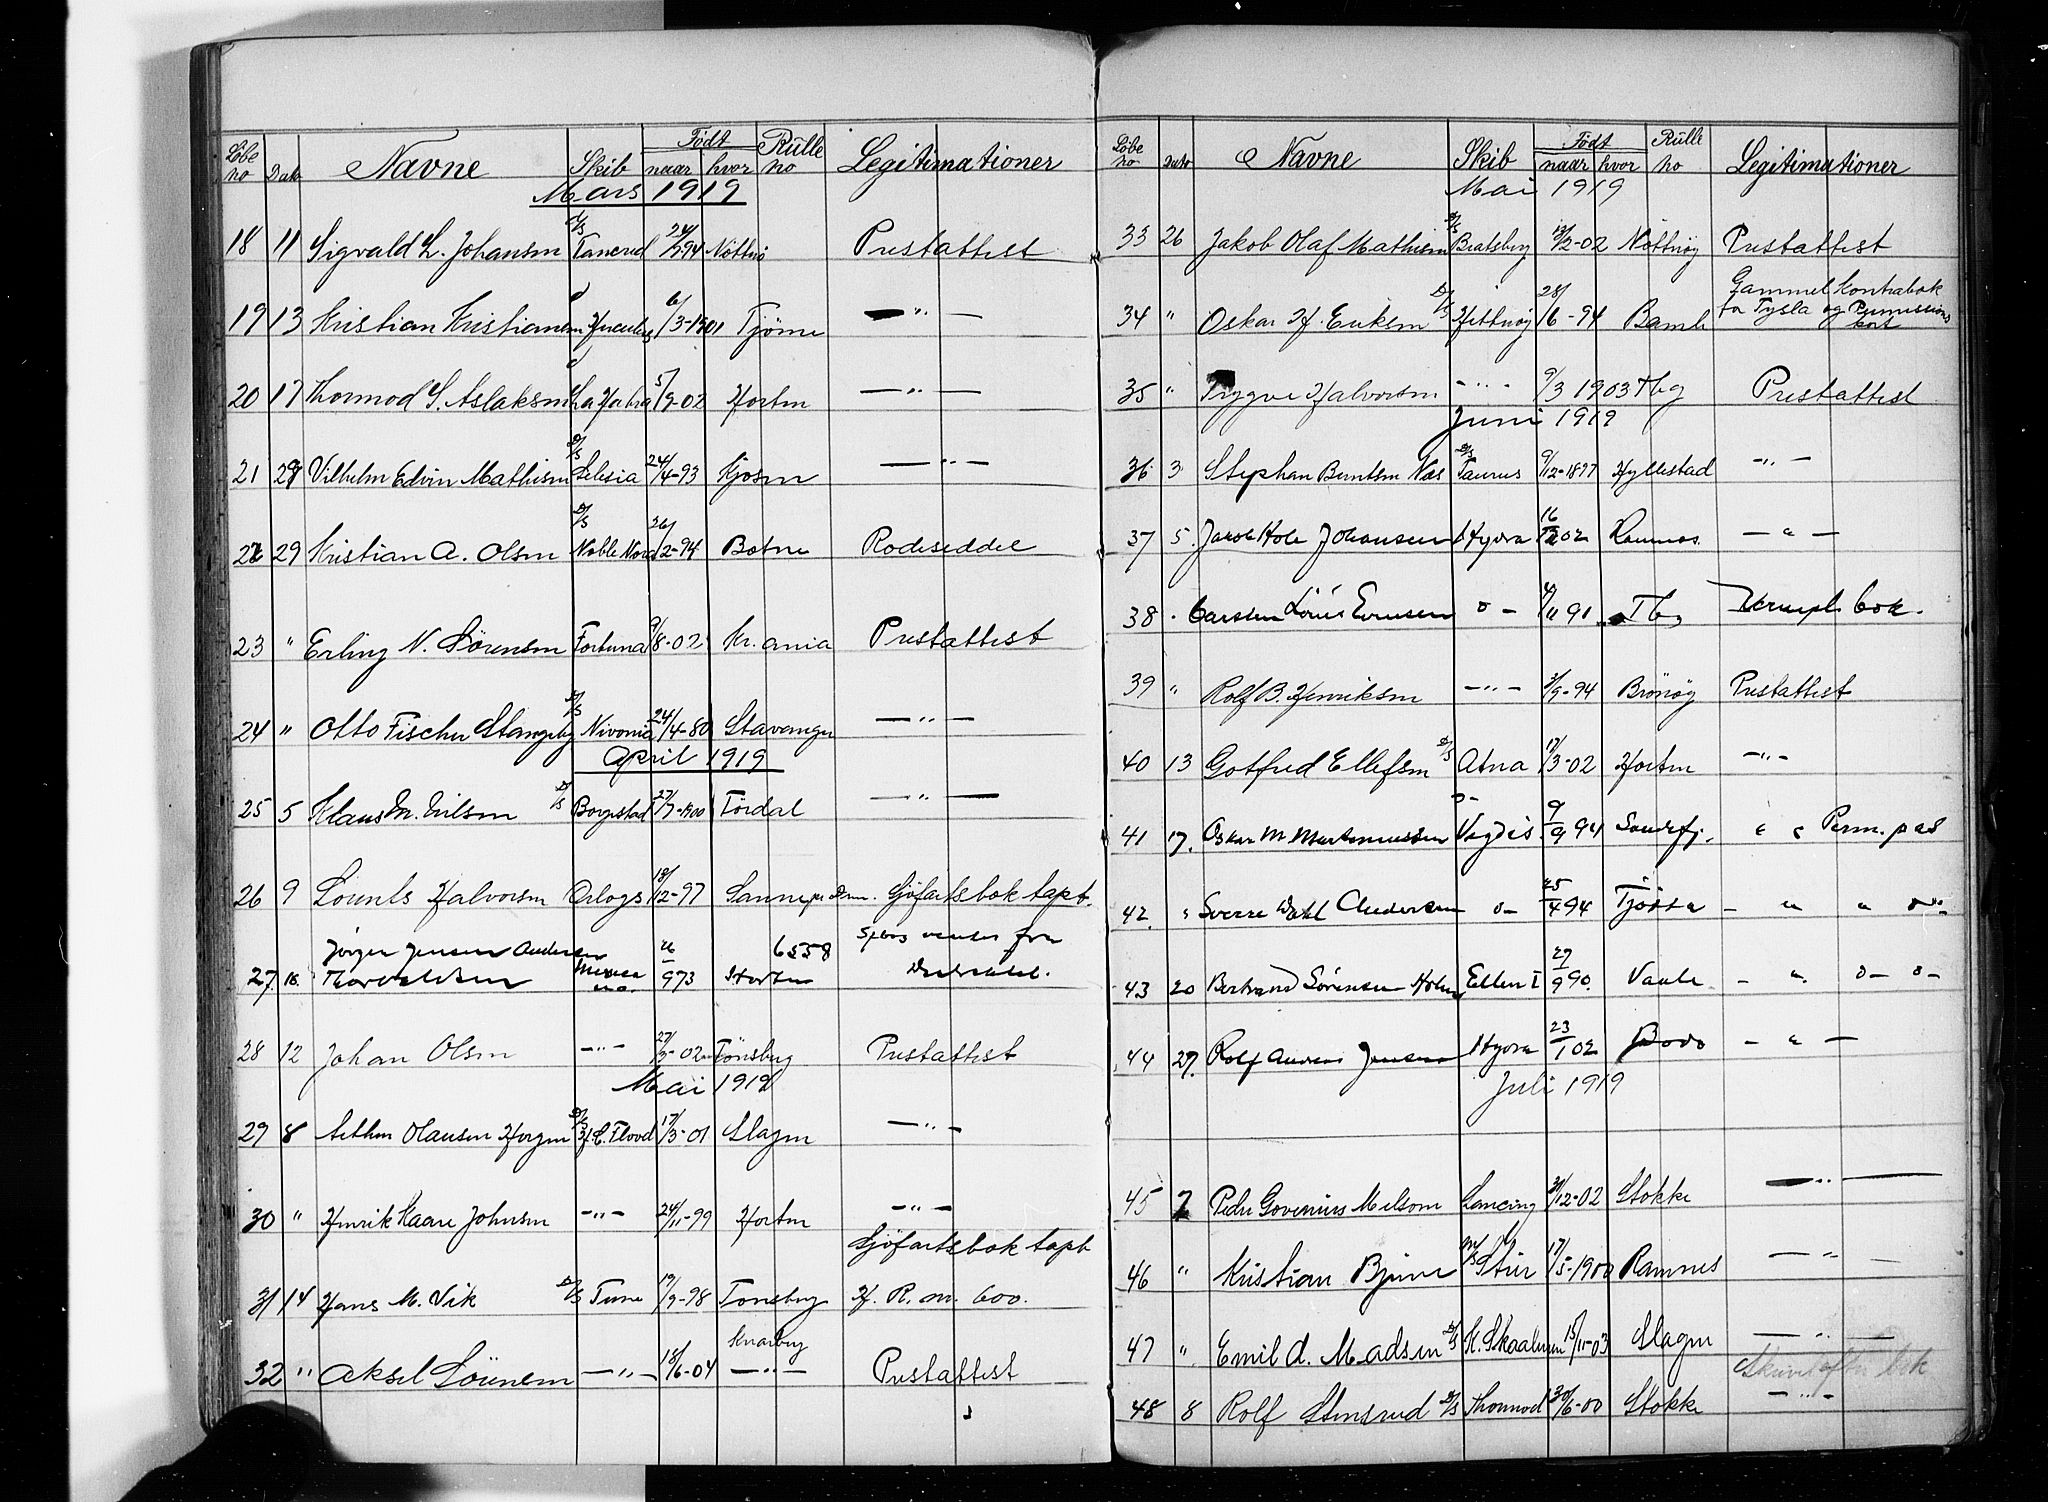 Løbe no Dato Navne Skib Født naar hvor Rulle no Legitimationer
Mars 1919
18 11 Sigvald L. Johansen d/s Tancred 24/7 94 Nøtterø Prestattest
19 13 Kristian Kristiansen Hercules 6/3-1901 Tjøme — " —
20 17 Thormod S. Aslaksen 5/9-02 Horten — " —
21 29 Vilhelm Edvin Mathisen D/S Selesia 24/4-93 Kjosen — " —
22 29 Kristian A. Olsen D/S Noble Nora 26/2-94 Botne Rodeseddel
23 " Erling N. Sørensen Fortuna 9/8-02 Kr.ania Prestattest
24 " Otto Fischer Stangeby D/S Nivonia 24/4-80 Stavanger — " —
April 1919
25 5 Klaus M. Nilsen D/S Borgestad 27/7-1900 Tørdal — " —
26 9 Lorents Halvorsen Orlogs 18/12-97 Sannepr Drm. Sjøfartsbok tapt.
Jørgen Jensen Andersen 26 6558
27 10. Thorvaldsen 973 Horten
28 12 Johan Olsen — " — 27/7-02 Tønsberg Prestattest
Mai 1919
29 8 Arthur Olausen Horgen D/S H.C. Flood 17/3-01 Slagen — " —
30 " Henrik Kaare Johnsen — " — 24/11-99 Horten — " —
Sjøfartsbok tapt
31 14 Hans M. Vik D/S Tune 19/9-98 Tønsberg H. R. m. 600.
Knarberg
32 " Aksel Sørensen — " — 18/6-04 — " — Prestattest
Løbe no Dato Navne Skib Født naar hvor Rulle no Legitimationer
Mai 1919
33 26 Jakob Olaf Mathisen D/S Bratsberg 13/2-02 Nøtterøy Prestattest
Gammel Kontrabok
34 " Oskar H. Eriksen D/S Hitterøy 28/6-94 Bamle for Tysla og Permissions
kort
35 " Trygve Halvorsen — " — 9/3 1903 Tbg Prestattest
Juni 1919
36 3 Stephan Berntsen Næs D/S Taurus 9/12-1897 Hyllestad — " —
37 5. Jakob Hole Johansen Hydra 16/12 02 Ramnes — " —
38 . Carsten Louis Evensen o — 4/11 91 Tbg bok.
39 " Rolf B. Henriksen — " — 3/9-94 Brönöy Prestattest
40 13 Gotfred Ellefsen D/S Atna 17/3-02 Horten — " —
41 17. Oskar M Martinussen Vigdis 9/9 94 Sandefj. " " Perm. pas
42. " Sverre Dahl Andersen o — 25/4 94 Tjøtta — " " o —
43 20 Bertrand Sørensen Holm Ellen I 27/9 90. Vaale — " o — o —
44 27. Rolf Andreas Jensen Hydra 23/1 02 Bodø — " —
Juli 1919
45 7 Peder Goverinus Melsom Lancing 31/12-02 Stokke — " —
46 " Kristian Bjune M/S Stir 17/5-1900 Ramnes — " —
47 " Emil d. Madsen D/S K. Skaaluren 15/11-03 Slagen — " —
Skrive efter
48 8 Rolf Stensrud D/S Thormod 30/6-00 Stokke — " —